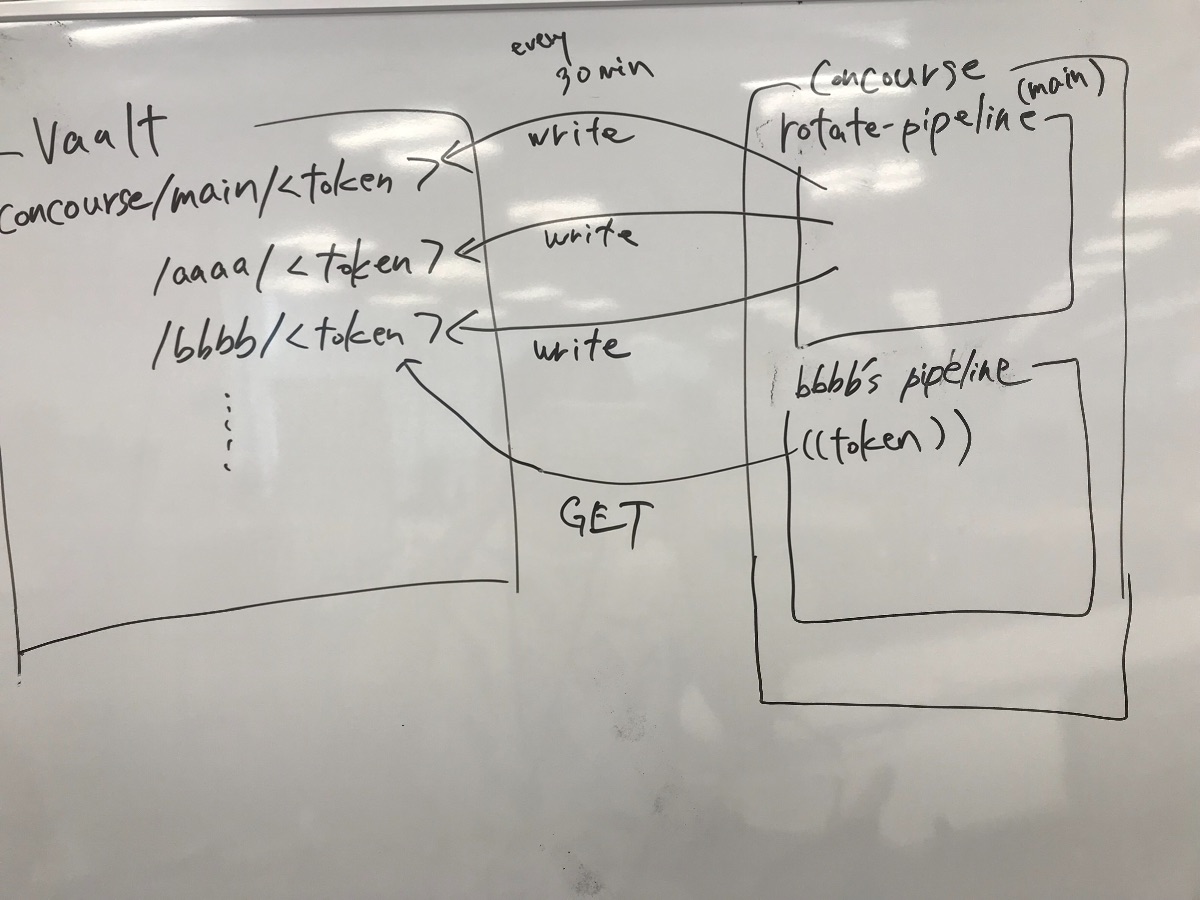 every
30 min
Vaalt
concourse/main/<token>
/aaaa/<token>
/bbbb/<token>
write
write
write
GET
Concourse
(main)
rotate-pipeline
bbbb's pipeline
((token))